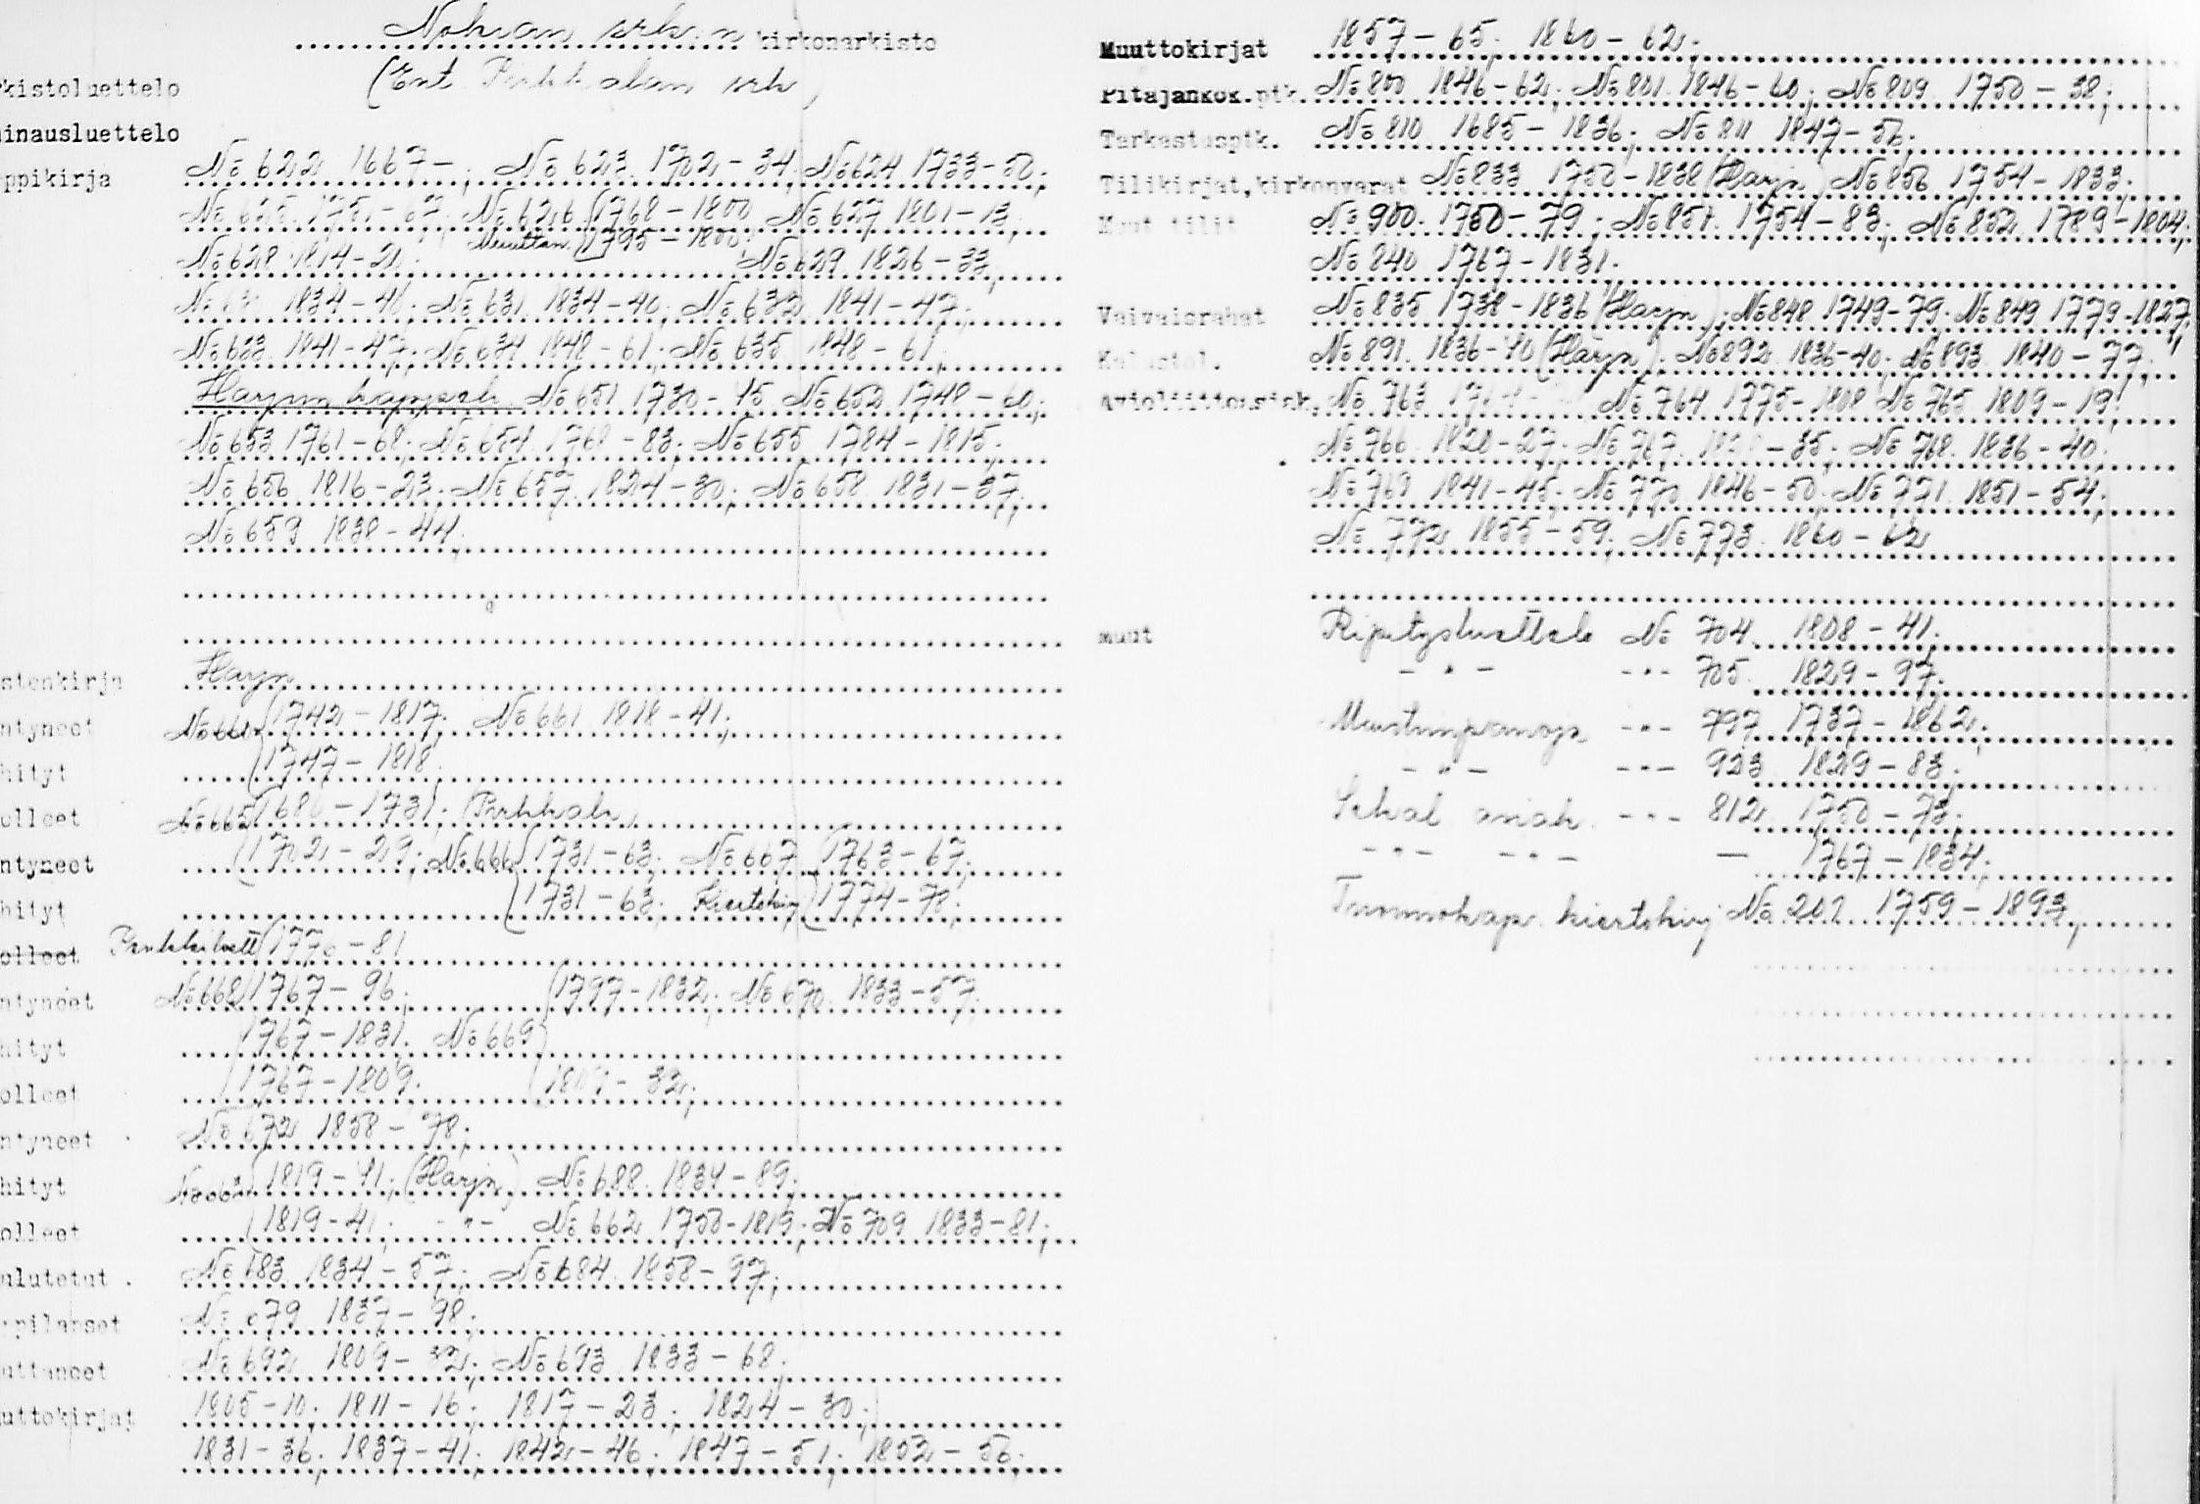 Nokian srk:n kirkonarkisto
(Ent Pirkkalan srk)
kistoluettelo
inausluettelo
ppikirja No 622 1667 - ; No 623. 1702 - 34; No 624 1733-50;
No 626 1768 - 1800 No 627 1801 - 13;
Muuttan. 1795 - 1800;
No 628 1814-21; No 629 1826-33;
1834 - 40; No 631 1834-40; No 632 1841-47;
No 633 1841-47; No 634 1848-61; No 635 1848-61;
Harjun kappseli No 651 1730 - 45 No 652 1748-60;
No 653 1761-68; No 654 1768-83; No 655 1784-1815;
No 656 1816-23; No 657 1824-30; No 658 1831-37;
No 659 1838-44;
stenkirja Harjn
ntyneet No 660 (1742-1817; No 661 1818-41;
hityt (1747 - 1818
olleet No 665 (1686-1731; Pirkkala
ntyneet (1702 - 29; No 666 (1731-63; No 667 (1763-67;
hityt (1731-63; Kiertokirj (1774-78;
olleet (1770-81
ntyneet No 668 (1767-96; (1797-1832; No 670 1833-57
hityt 1767-1831; No 669
olleet 1767-1809; 1809-32;
ntyneet No 672 1858-78;
hityt (1819-41; (Harjn) No 688 1834-89;
olleet (1819-41; - " - No 662 1750-1819; No 709 1833-81;
ulutetut. No 683 1834-57; No 684 1858-97;
pilapset No 679 1837-98;
uttaneet No 692 1809-32; No 693 1833-68;
uttokirjat 1805-10; 1811-16; 1817-23; 1824-30;
1831-36; 1837-41; 1842-46; 1847-51; 1852-56;
Muuttokirjat 1857-65; 1860-62;
Pitäjänkok.ptk. No 800 1846-62; No 801 1846-60; No 809 1750-38;
Tarkastusptk. No 810 1685-1836; No 811 1847-56;
Tilikirjat,kirkonvarat No 833 1750-1838 (Harjn) No 850 1754-1833;
Muut tilit No 900 1750-79; No 851 1754-83; No 852 1789-1804;
No 840 1767-1831;
Vaivaisrahat No 835 1738-1836 (Harjn); No 848 1749-79; No 849 1779-1827;
Kalustol. No 891 1836-40 (Harjn); No 892 1836-40; No 893 1840-77;
Avioliittousisk. No 763 No 764 1775-1808 No 765 1809-19;
No 766 1820-27; No 767 -35; No 768 1836-40;
No 769 1841-45; No 770 1846-50; No 771 1851-54;
No 772 1855-59; No 773 1860-62
muut Ripitysluettelo No 704 1808-41;
- " - - " - 705 1829-97;
Muistiinpanoja - " - 797 1737-1862;
- " - - " - 923 1829-83;
Sekal asiak. - " - 812 1750-73;
- " - - " - — 1767-1834;
Tuomiokap. kiertokirj No 202 1759-1893;